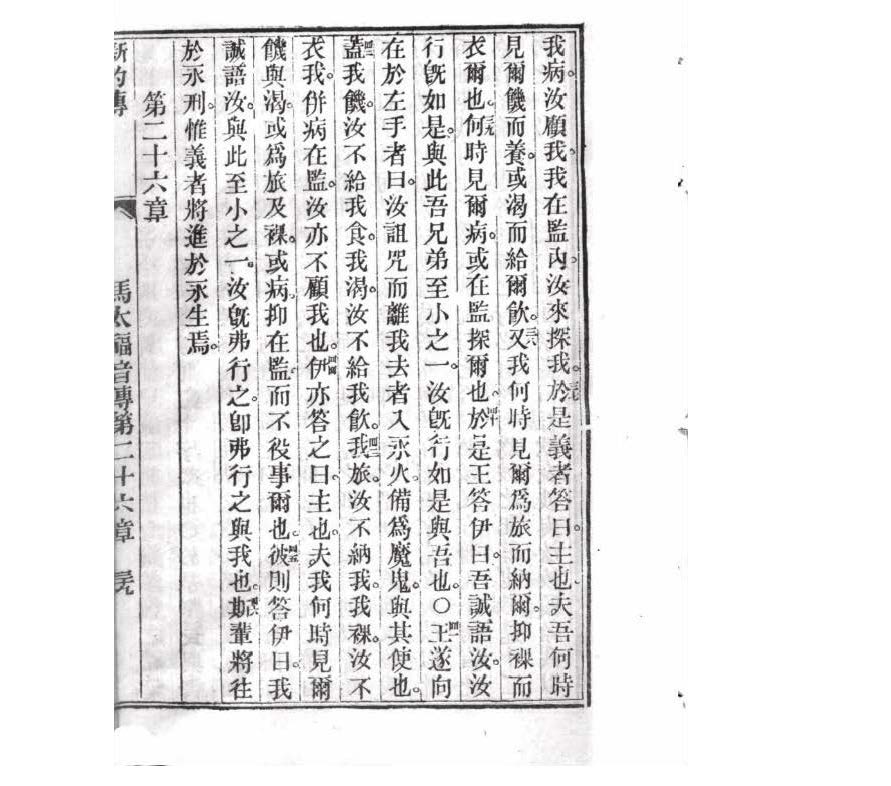 我病。汝顧我。我在監內。汝來探我。三七於是義者答曰。主也。夫吾何時
見爾饑而養。或渴而給爾飲。三八又我何時見爾爲旅而納爾。抑裸而
衣爾也。三九何時見爾病。或在監探爾也。四十於是王答伊曰。吾誠語汝。汝
行旣如是。與此吾兄弟至小之一。汝旣行如是與吾也。〇四一王遂向
在於左手者曰。汝詛咒而離我去者入永火。備爲魔鬼。與其使也。
四二蓋我饑。汝不給我食。我渴。汝不給我飲。四三我旅。汝不納我。我裸。汝不
衣我。併病在監。汝亦不顧我也。四四伊亦答之曰。主也。夫我何時見爾
饑與渴。或爲旅及裸。或病。抑在監。而不役事爾也。四五彼則答伊曰。我
誠語汝。與此至小之一。汝旣弗行之。卽弗行之與我也。四六斯輩將往
於永刑。惟義者將進於永生焉。
第二十六章
新約傳 馬太福音傳第二十六章 三九